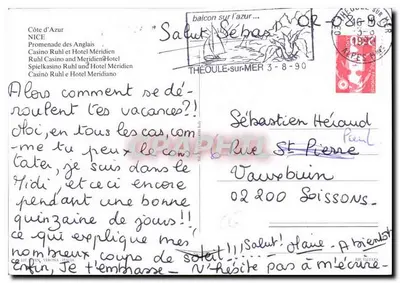 Côte d'Azur
NICE
Promenade des Anglais
Casino Ruhl et Hotel Méridien
Ruhl Casino and Meridien Hotel
Spielkasino Ruhl und Hotel Meridien
Casino Ruhl e Hotel Meridiano
balcon sur l'azur...
THÉOULE-sur-MER 3-8-90
Salut Sébast
02-08-9
Alors comment se dé-
roulent tes vacances?!
Moi, en tous les cas, com-
me tu peux le cons
tater, je suis dans le
Midi, et ceci encore
pendant une bonne
quinzaine de jours!!
ce qui explique mes
nombreux coups de soleil!!!
Enfin, Je t'embrasse - N'hésite pas à m'écrire-
Salut! A bientôt
Sébastien Héraud
6 Rue St Pierre
Vauxbuin
02 200 SOISSONS.